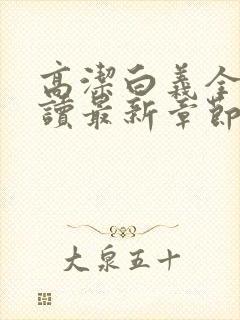 高潔白義全
讀最新章節
大泉五十